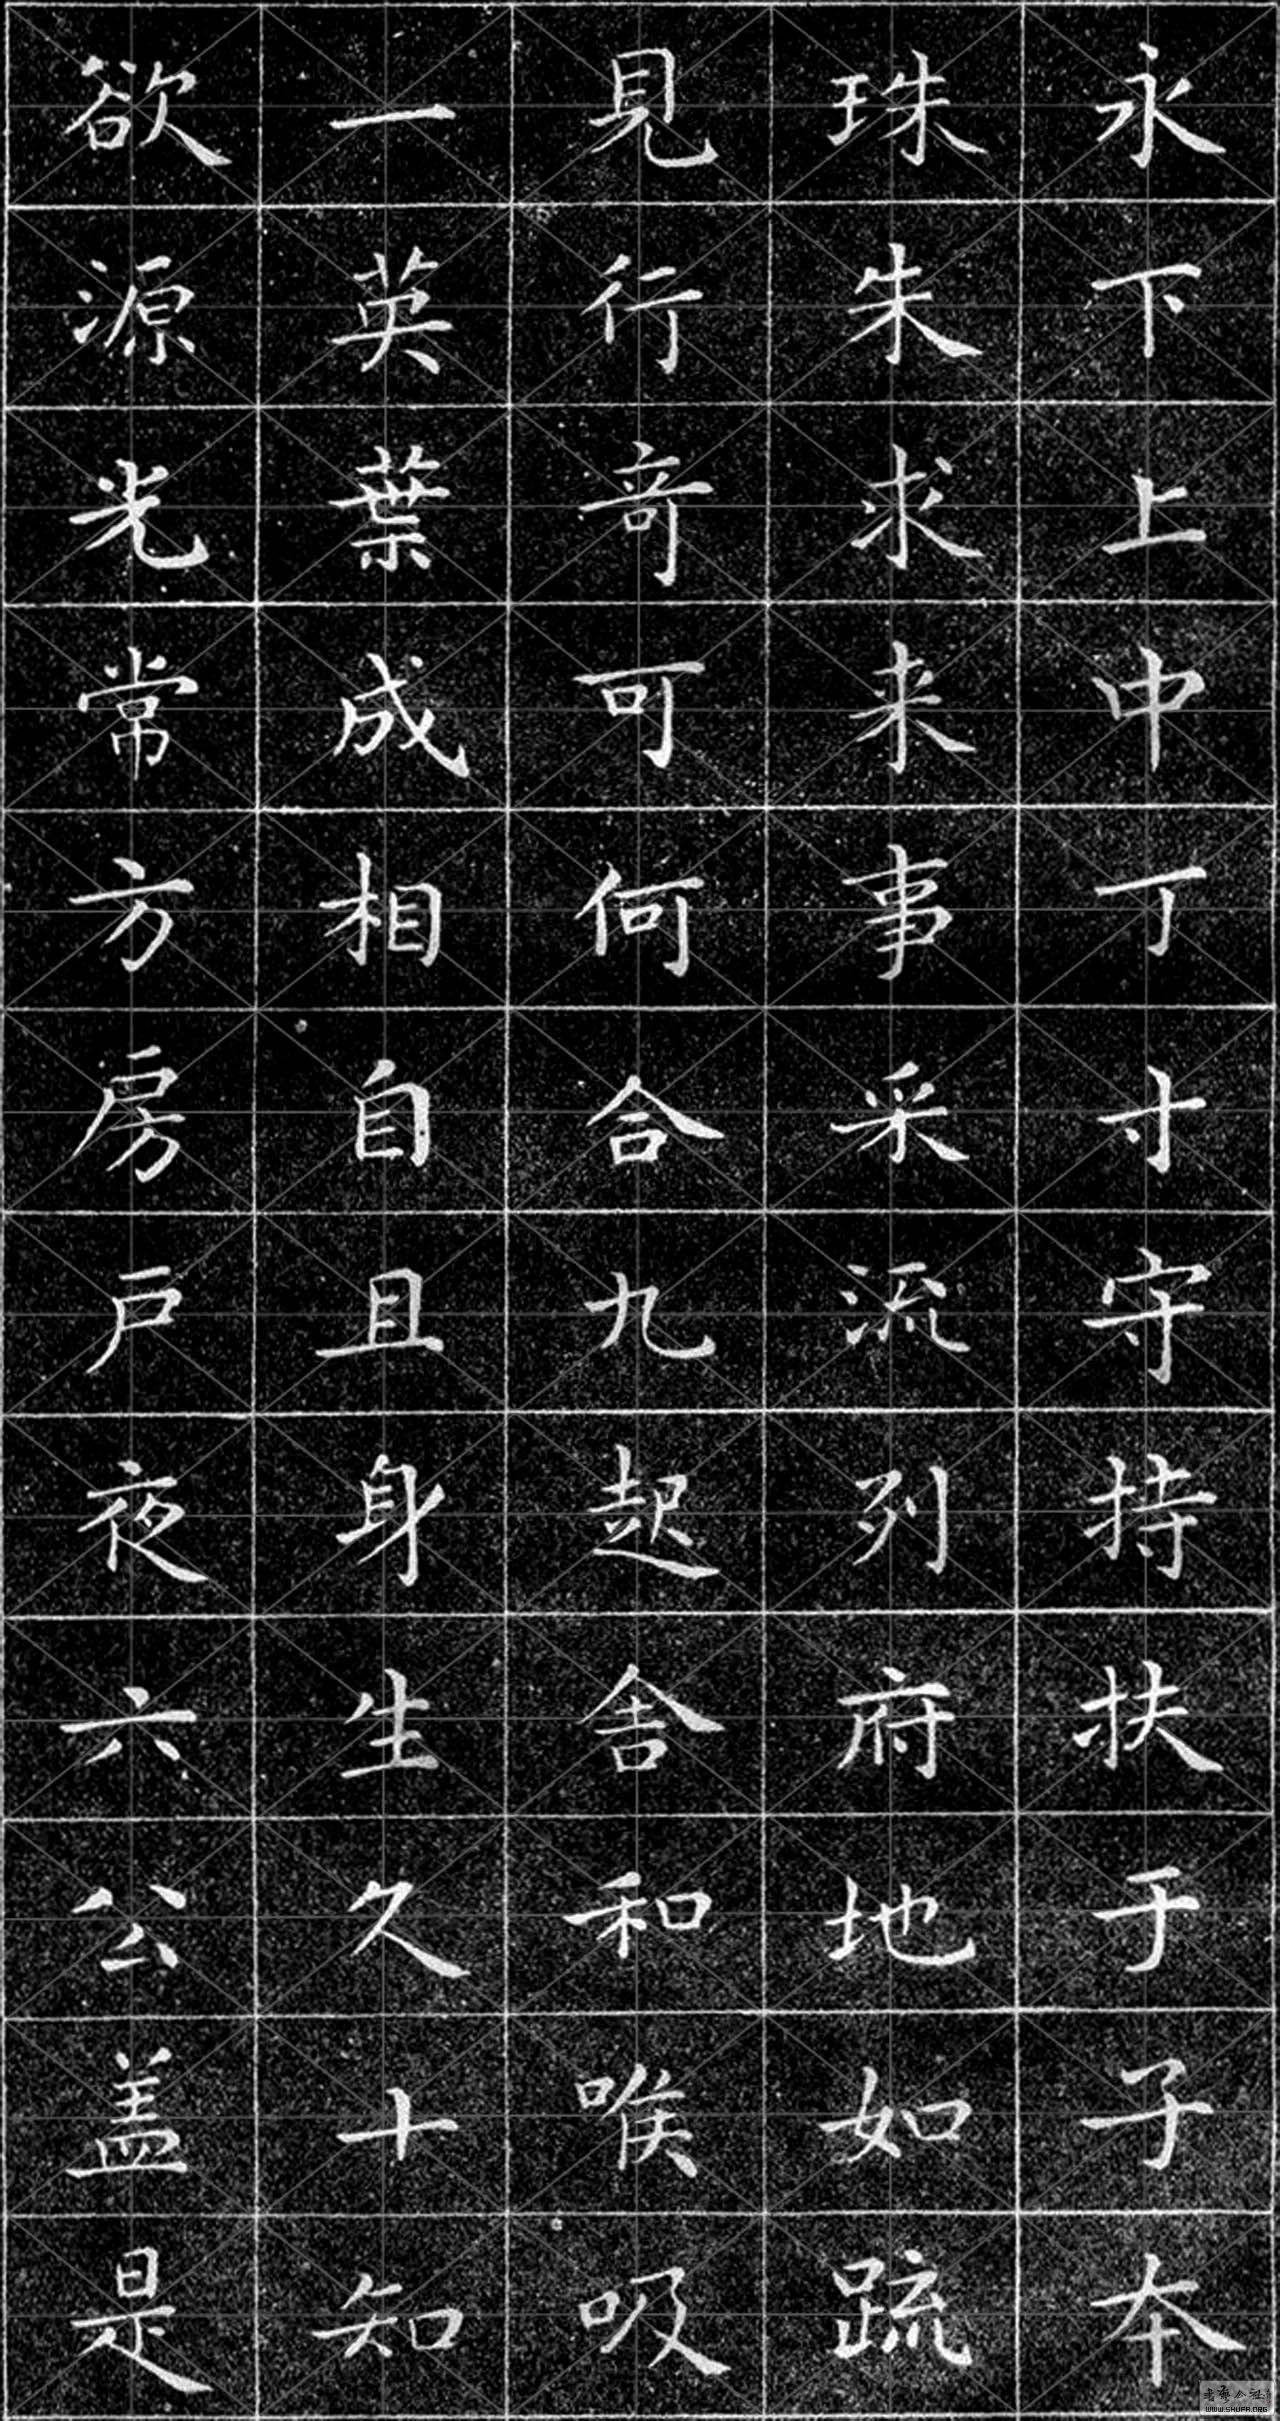 永下上中丁寸守持扶于子本
珠朱求来事采流列府地如踈
見行奇可何合九起舍和喉吸
一英葉成相自且身生久十知
欲源光常方房戶夜六公盖是
WWW.SHUFA.ORG